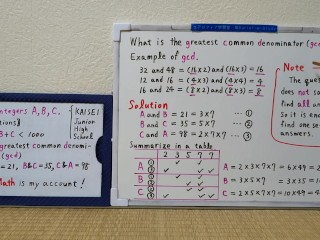 ntegers A, B, C.
tions}
B+C < 1000
greatest common denomi-
(gcd)
= 21, B&C=35, C&A = 98
Math is my account!
KAISEI
Junior
High
School
What is the greatest common denominator (gcd)
Example of gcd.
32 and 48 = (16×2) and (16×3) = 16
12 and 16 = (4×3) and (4×4) = 4
16 and 24 = (8×2) and (8×3) = 8
Solution
A and B = 21 = 3×7 ... ①
B and C = 35 = 5×7 ... ②
C and A = 98 = 2×7×7 ... ③
Summarize in a table
2 3 5 7 7
A ① ✓ ✓
③ ✓ ✓ ✓
B ① ✓ ✓
② ✓ ✓
C ② ✓ ✓
③ ✓ ✓ ✓
A = 2×3×7×7 = 6×49 =
B = 3×5×7 = 3×35 = 10
C = 2×5×7×7 = 10×49 = 4
Note
The ques
does not s
find all an
So it is eno
find one se
answers.